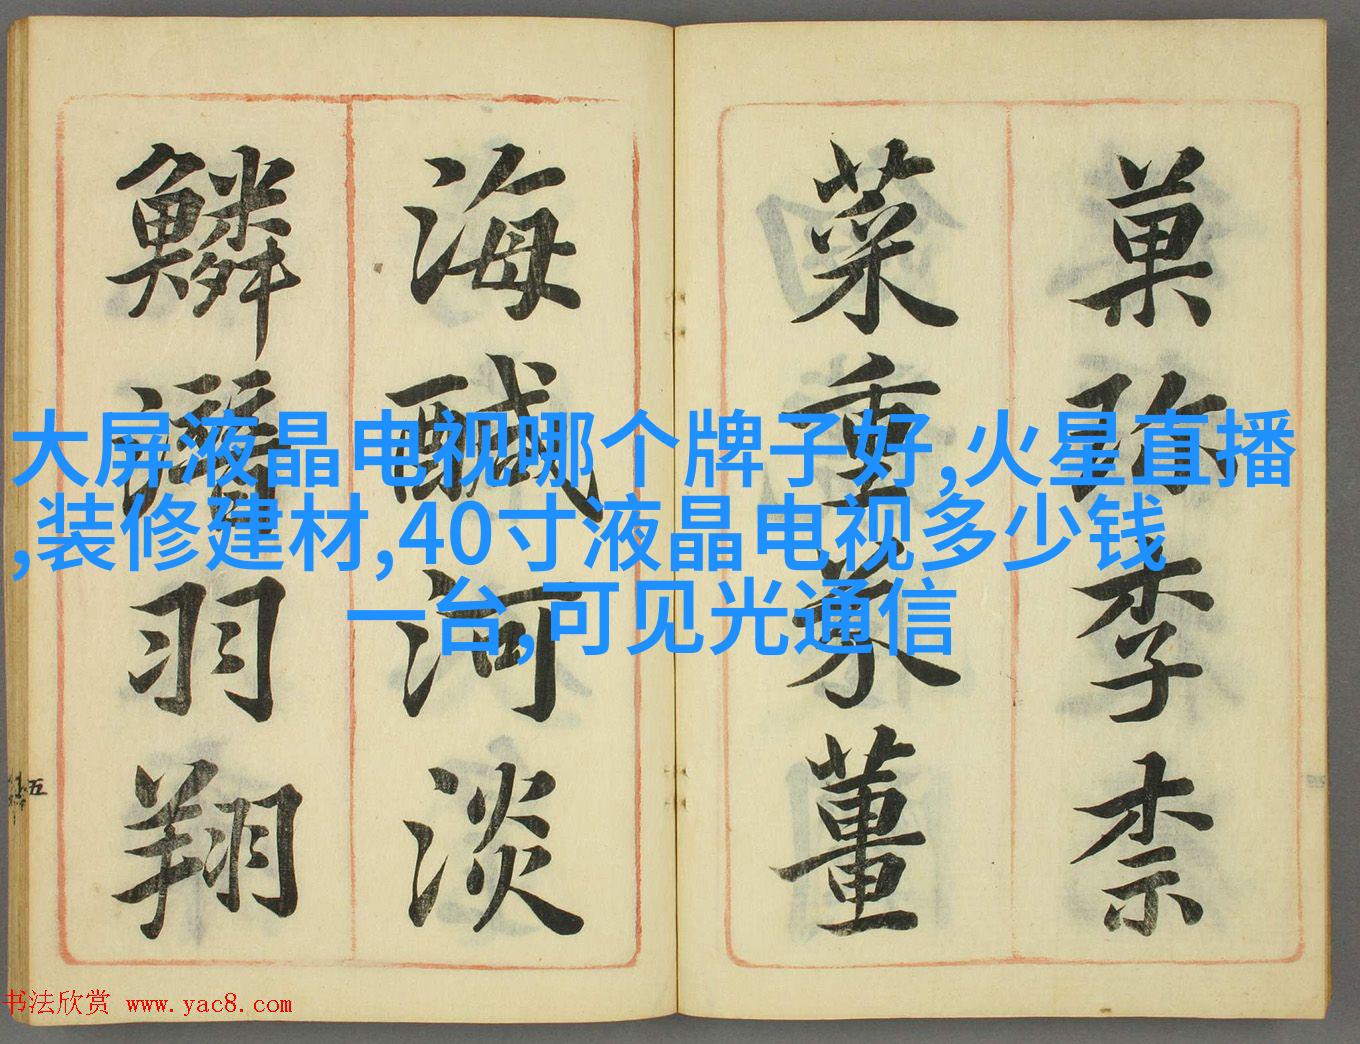 菓珍李柰
菜重芥薑
海醎河淡
鱗潛羽翔
五
大屏液晶电视哪个牌子好,火星直播
,装修建材,40寸液晶电视多少钱
一台,可见光通信
书法欣赏 www.yac8.com